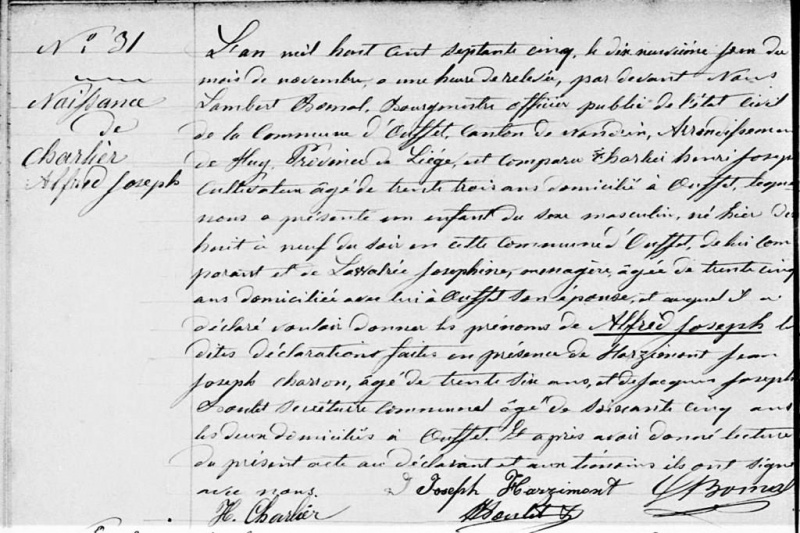 N° 31
Naissance
de
Charlier
Alfred Joseph
L'an mil huit cent septante cinq, le dix neuvième jour du
mois de novembre, a une heure de relevée, par devant Nous
Lambert Bomal, Bourgmestre officier public de l'état civil
de la Commune d'Ouffet, Canton de Nandrin, Arrondissement
de Huy, Province de Liége, est comparu Charlier henri Joseph
Cultivateur âgé de trente trois ans domicilié à Ouffet, lequel
nous a présenté un enfant du sexe masculin, né hier de
huit à neuf du soir en cette commune d'Ouffet, de lui com
parant et de Josephine, menagère, âgée de trente cinq
ans domiciliée avec lui à Ouffet son épouse, et auquel il a
déclaré vouloir donner les prénoms de Alfred Joseph les
dites déclarations faites en présence de Harzimont Jean
Joseph charron, âgé de trente six ans, et de Jacques Joseph
Boulet secrétaire communal âgé de soixante cinq ans
les deux domiciliés à Ouffet. Et après avoir donné lecture
du présent acte au déclarant et aux témoins ils ont signé
avec nous. J Joseph Harzimont LBomal
H. Charlier Boulet